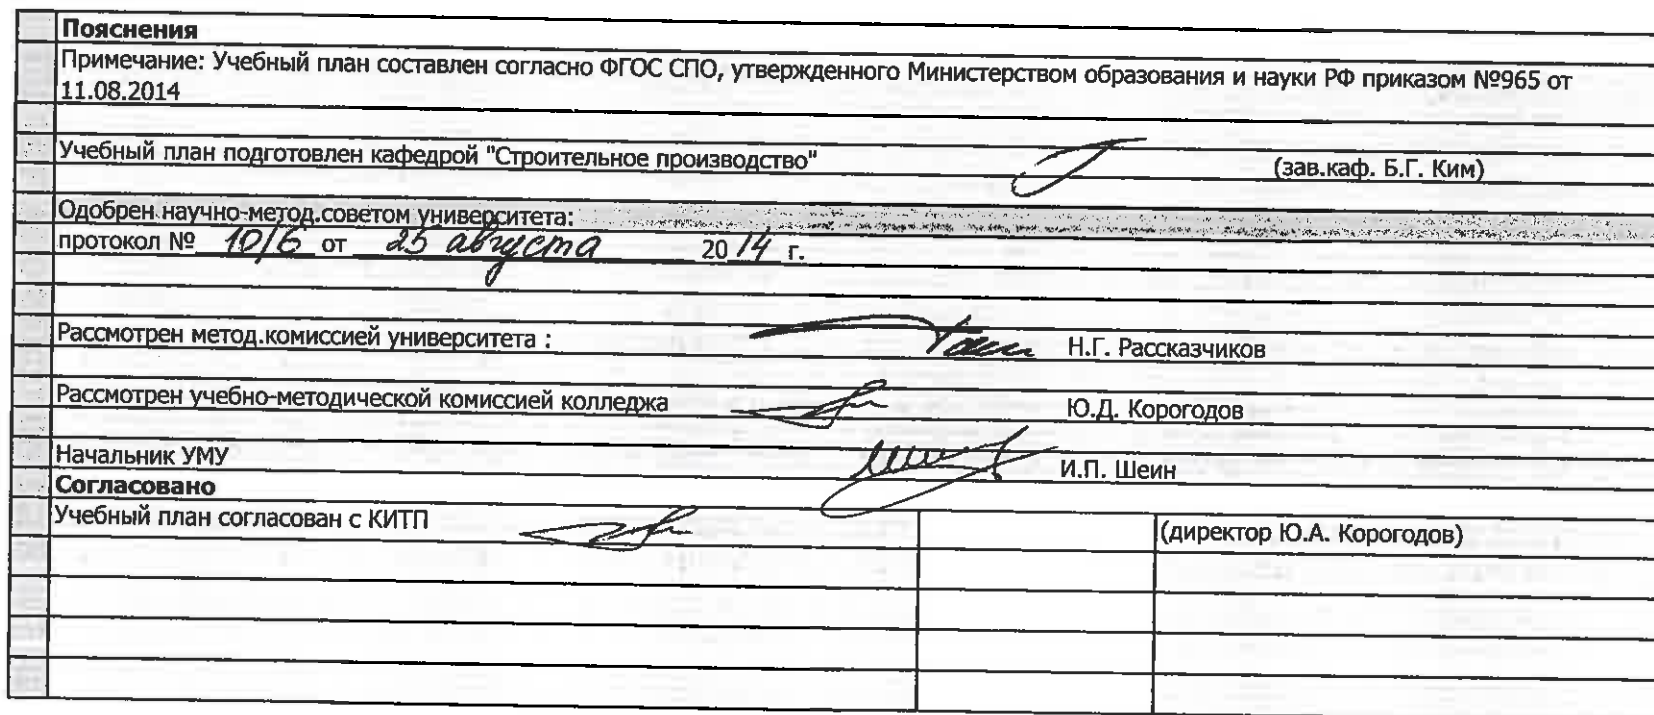 Пояснения
Примечание: Учебный план составлен согласно ФГОС СПО, утвержденного Министерством образования и науки РФ приказом №965 от
11.08.2014
Учебный план подготовлен кафедрой "Строительное производство" (зав.каф. Б.Г. Ким)
Одобрен научно-метод.советом университета:
протокол № 10/6 от 25 августа 2014 г.
Рассмотрен метод.комиссией университета : Н.Г. Рассказчиков
Рассмотрен учебно-методической комиссией колледжа Ю.Д. Корогодов
Начальник УМУ И.П. Шеин
Согласовано
Учебный план согласован с КИТП (директор Ю.А. Корогодов)